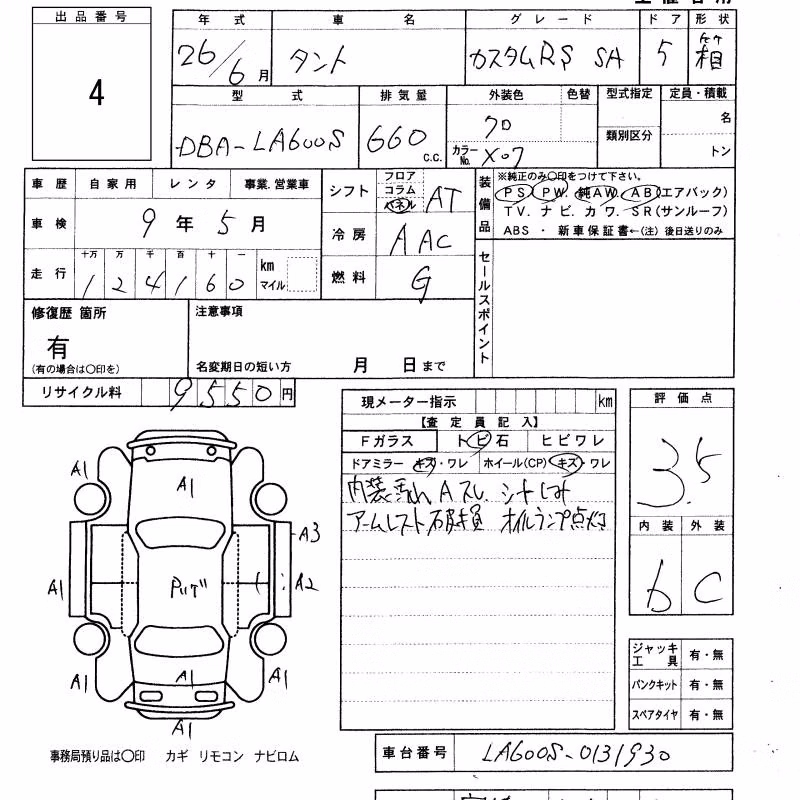 出品番号
4
年式 車名 グレード ドア 形状
26/6月 タント カスタムRS SA 5 箱
型式 排気量 外装色 色替 型式指定 定員・積載
DBA-LA600S 660 c.c. クロ 類別区分 名
カラーNo. X07 トン
車歴 自家用 レンタ 事業.営業車
シフト フロア コラム パネル AT
装備品 ※純正のみ○印をつけて下さい。
PS PW. 純AW. AB(エアバック)
TV. ナビ. カワ. SR(サンルーフ)
ABS ・ 新車保証書←(注) 後日送りのみ
車検 9年5月
冷房 AAC
走行 十万 万 千 百 十 一
124160 km マイル
燃料 G
セールスポイント
修復歴 箇所
有
(有の場合は○印を)
注意事項
名変期日の短い方 月 日まで
リサイクル料 9550円
現メーター指示 km
【査定員記入】
Fガラス トビ石 ヒビワレ
ドアミラー キズ・ワレ ホイール(CP) キズ・ワレ
内装 Aスレ. シートしみ
アームレスト破損 オイルランプ点灯
評価点
3.5
内装 外装
b C
A1
A1
A1
A3
A1
A2
A1
A1
A1
A1
ジャッキ工具 有・無
パンクキット 有・無
スペアタイヤ 有・無
事務局預り品は○印 カギ リモコン ナビロム
車台番号 LA600S-0131930